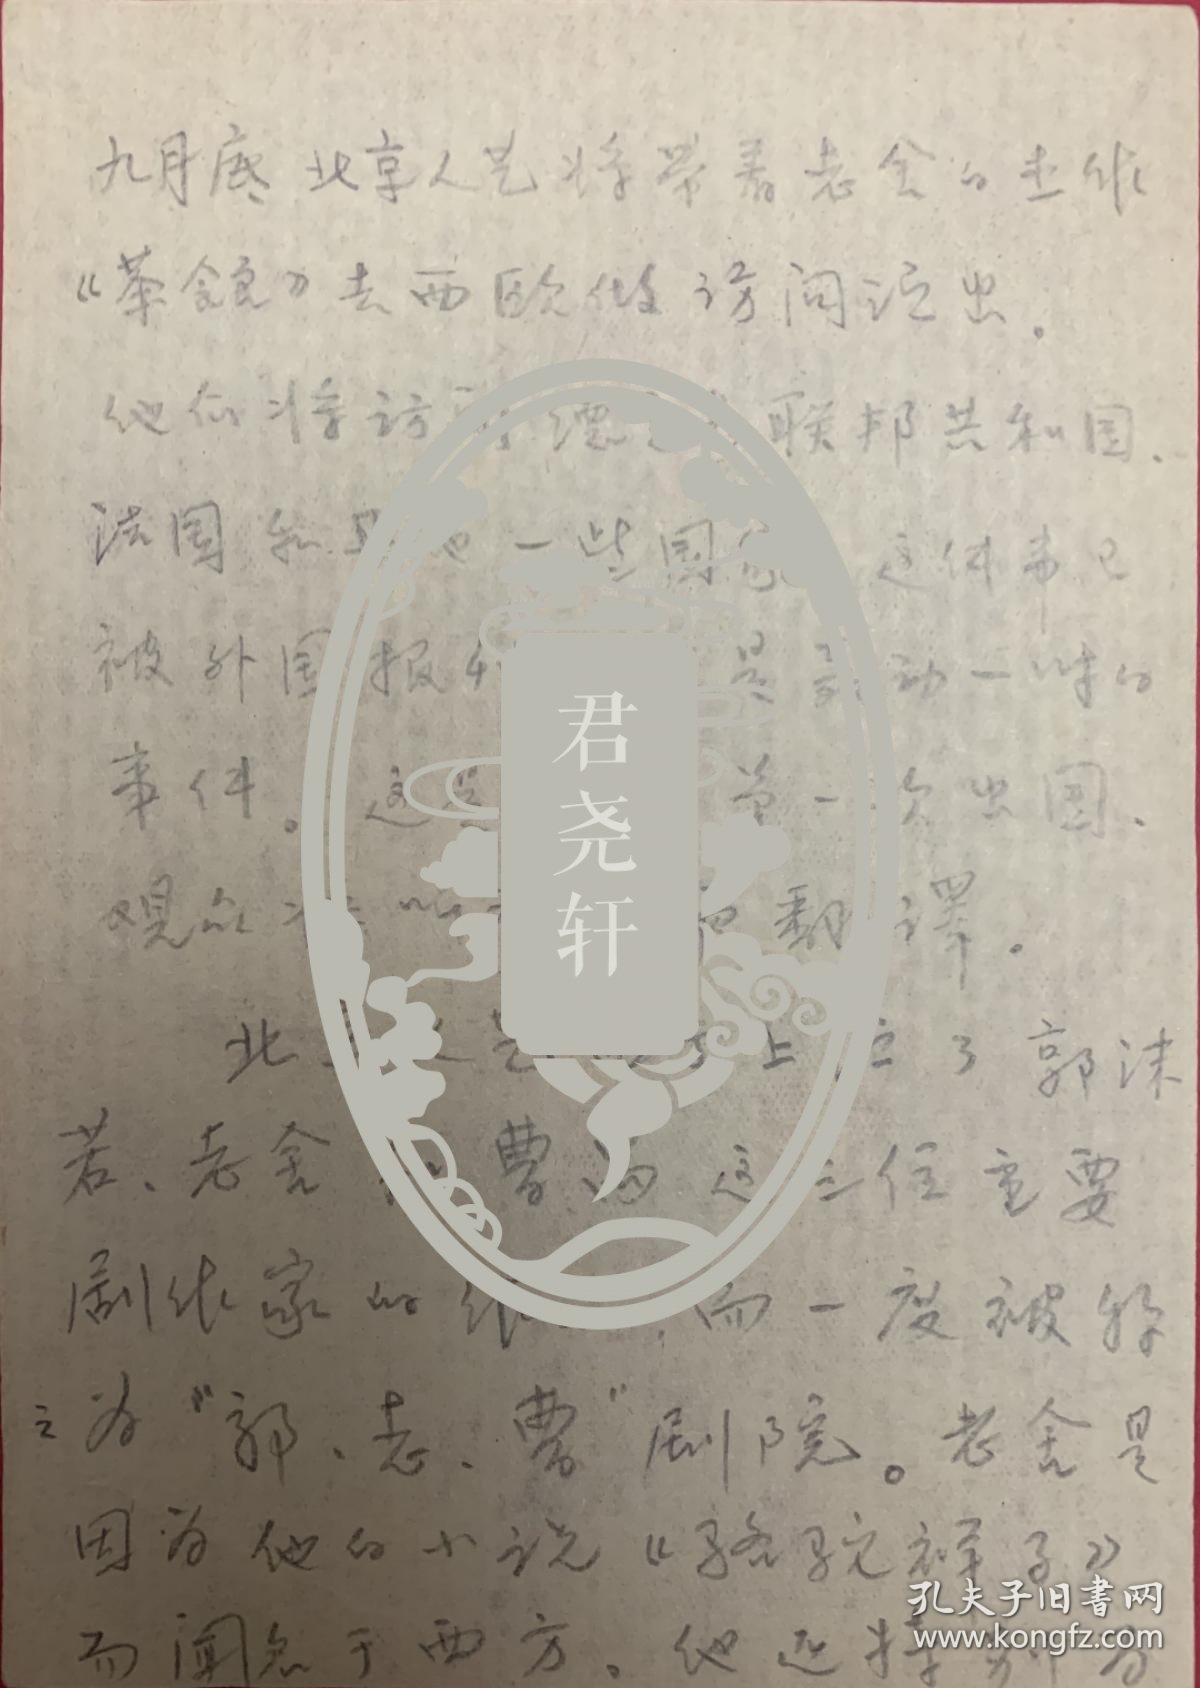 九月底北京人艺将带着老舍的杰作
《茶馆》去西欧做访问演出。
他们将访 德 联邦共和国、
法国和 一些国家 这件事已
被外国报 是 动一时的
事件。这 第一次出国、
观众将 翻译。
北 艺 上演了郭沫
若、老舍 曹禺这三位重要
剧作家的作 而一度被称
之为“郭、老、曹”剧院。老舍是
因为他的小说《骆驼祥子》
而闻名于西方。他还特别为
君尧轩
孔夫子旧书网
www.kongfz.com